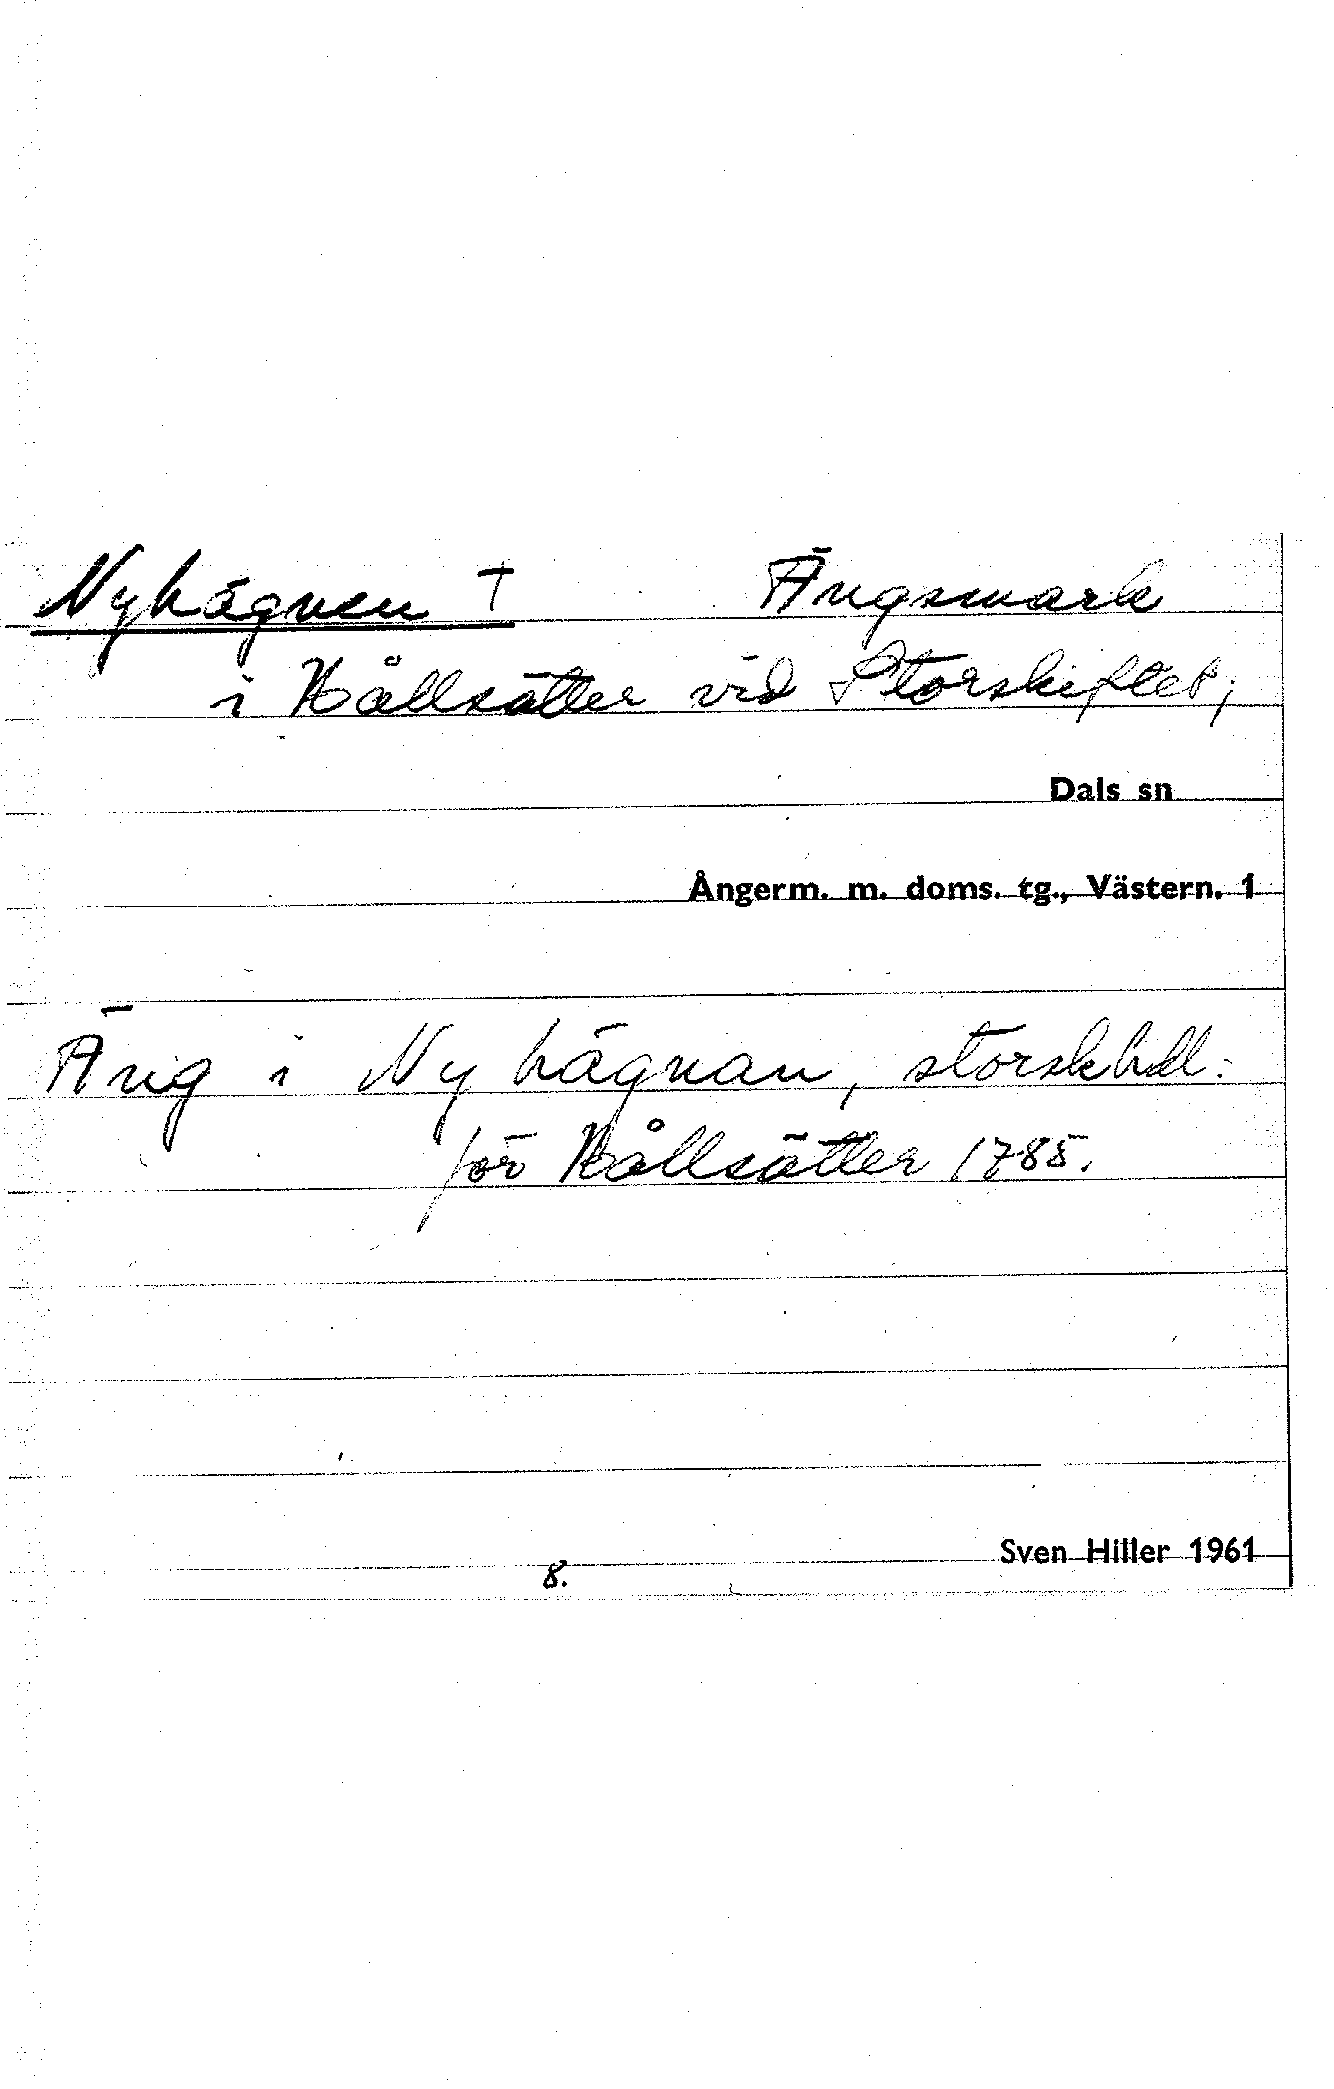 Nyhägnen † Ängsmark
i Hållsätter vid Storskiftet;
Dals sn
Ångerm. m. doms. tg., Västern. 1
Äng i Ny hägnan, storskhdl:
för Hållsätter 1785.
Sven Hiller 1961
8.